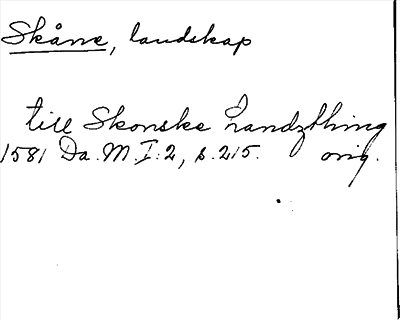 Skåne, landskap
till Skonske Landzthing
1581 Da. M. I: 2, s. 215. orig.